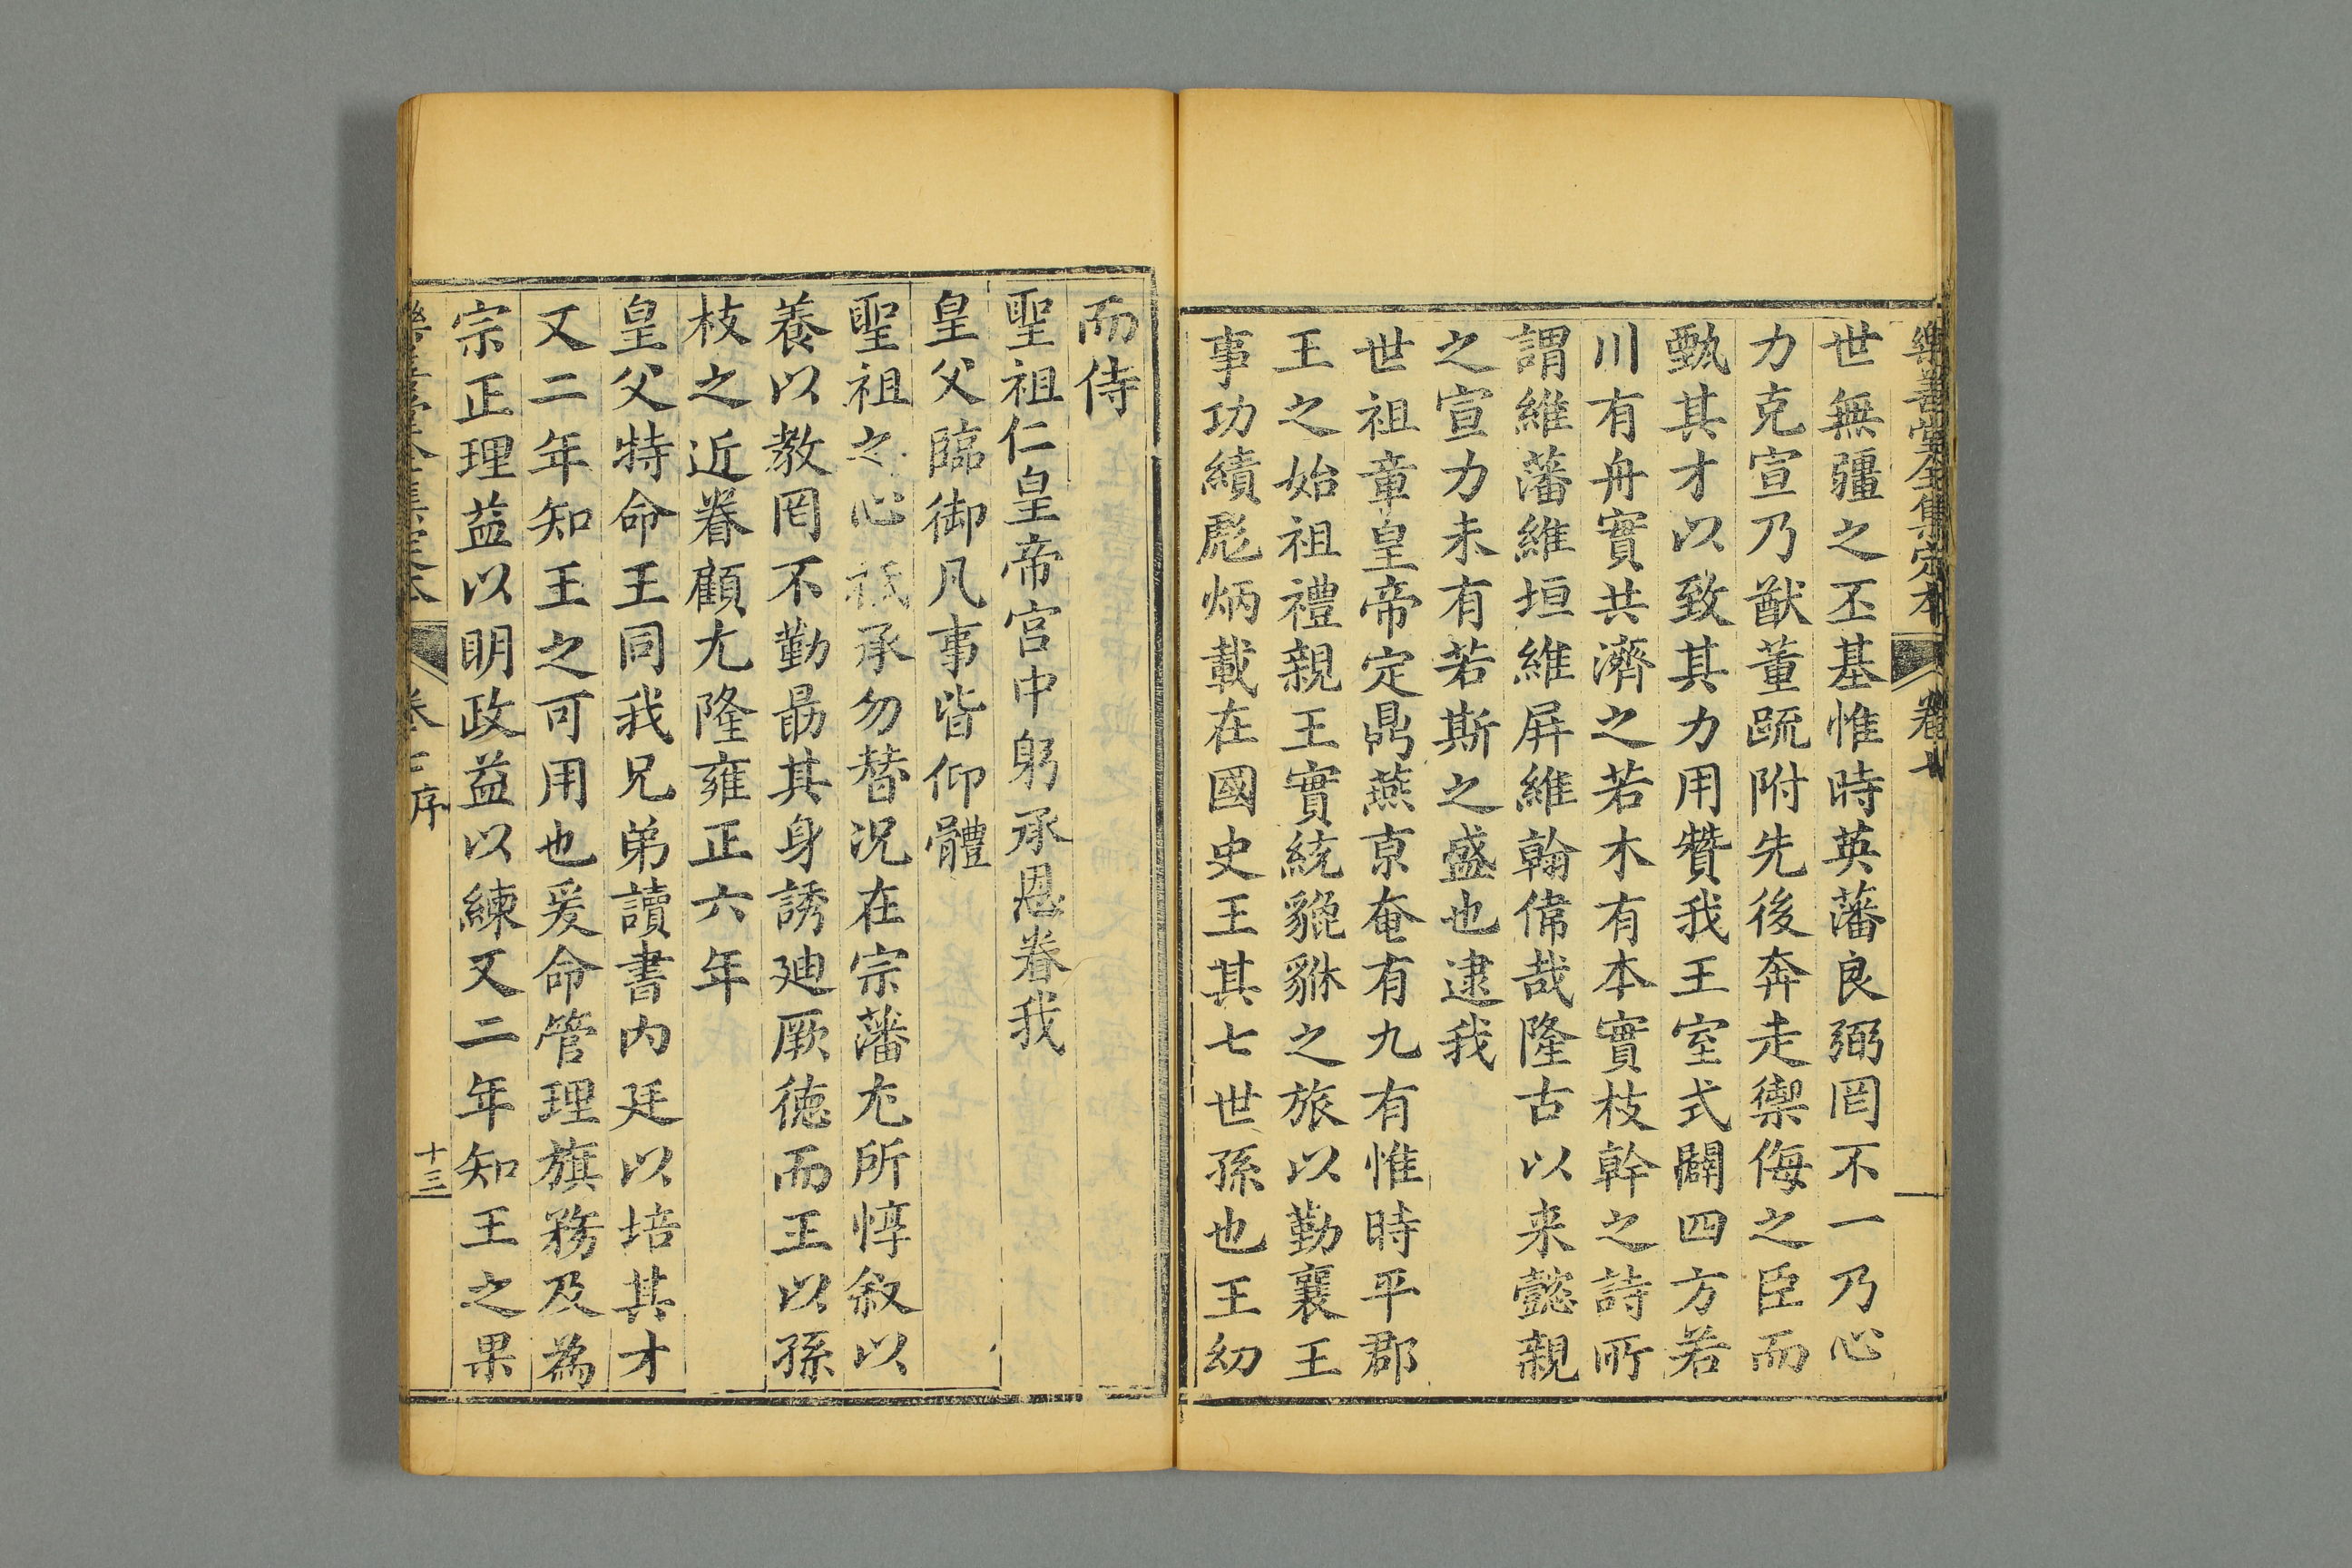 樂善堂全集定本 卷七
世無疆之丕基惟時英藩良弼罔不一乃心
力克宣乃猷董疏附先後奔走禦侮之臣而
甄其才以致其力用贊我王室式闢四方若
川有舟實共濟之若木有本實枝幹之詩所
謂維藩維垣維屏維翰偉哉隆古以来懿親
之宣力未有若斯之盛也逮我
世祖章皇帝定鼎燕京奄有九有惟時平郡
王之始祖禮親王實統貔貅之旅以勤襄王
事功績彪炳載在國史王其七世孫也王幼
而侍
聖祖仁皇帝宫中躬承恩眷我
皇父臨御凡事皆仰體
聖祖之心祗承勿替况在宗藩尤所惇叙以
養以教罔不勤朂其身誘廸厥徳而王以孫
枝之近眷顧尤隆雍正六年
皇父特命王同我兄弟讀書内廷以培其才
又二年知王之可用也爰命管理旗務及為
宗正理益以明政益以練又二年知王之果
樂善堂全集定本 序 十三